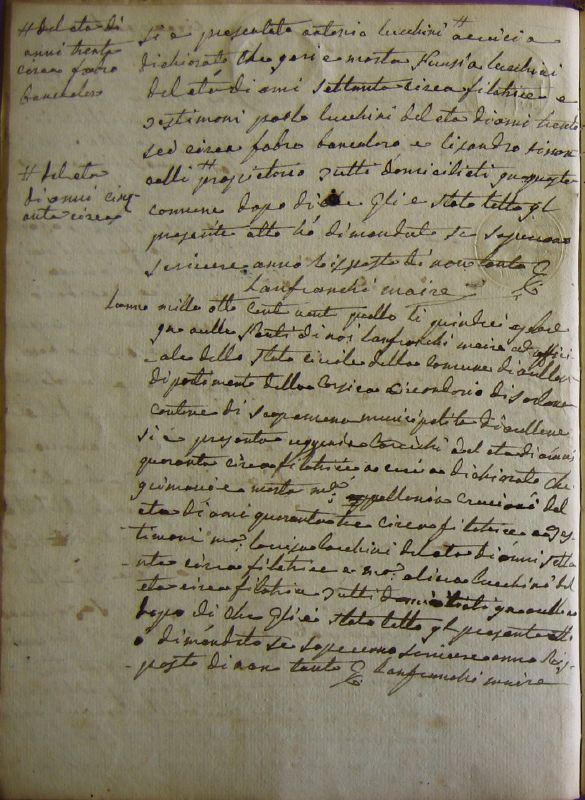 # del età di
anni trenta
circa fabro
bancaloro
# del età
di anni cinq-
anta circa
si è presentato antonio lucchini # a cui a
dichiarato che geri e morta Nunsia lucchini
del età di anni settanta circa filatrice e
testimoni paolo lucchini del età di anni trenta
sei circa fabro bancaloro e lisandro
# propietorio tutti domiciliati qua questa
comune dopo di che Gli è stato letto gl
presente atto hò dimandato se sapevano
scrivere anno risposto di non tanto
Lanfranchi maire
Lanno mille otto cent vent quatto li quindeci
qua aullè nanti di noi Lanfranchi maire ed offici
-ale dello stato civile della comune di aullene
dipartimento della Corsica circondario di Sartene
cantone di municipalité di aullene
si è presenta del età di anni
quaranta circa filatrice a cui a dichiarato che
e morta ma. appellonia del
età di anni quaranta tre circa filatrice a tes-
timoni ma. lucchini del età di anni setta
-nta circa filatrice e ma. lucchini del
età circa filatrice tutti domiciliati qua aullene
dopo di che Gli è stato letto gl presente atto
ò dimandato se sapevano scrivere anno ris-
-posto di non tanto Lanfranchi maire